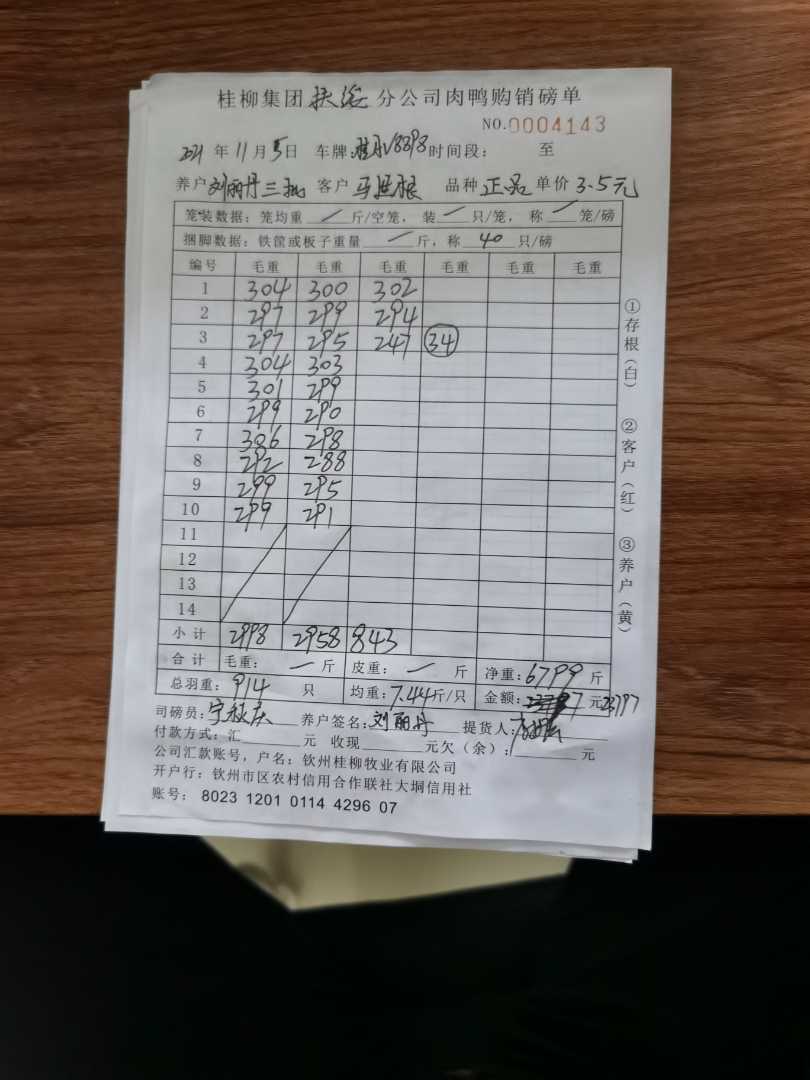 桂柳集团 分公司肉鸭购销磅单
NO.0004143
2021 年 11 月 5 日 车牌: 时间段: 至
养户 刘丽丹三批 客户 品种 正品 单价 3.5元
笼装数据:笼均重 / 斤/空笼, 装 / 只/笼, 称 / 笼/磅
捆脚数据:铁筐或板子重量 / 斤,称 40 只/磅
编号 毛重 毛重 毛重 毛重 毛重 毛重
1 304 300 302
2 297 299 294
3 297 295 247 34
4 304 303
5 301 299
6 299 290
7 306 298
8 292 288
9 299 295
10 299 291
11
12
13
14
小计 2998 2958 843
合计 毛重: / 斤 皮重: / 斤 净重:6799 斤
总羽重:914 只 均重:7.44斤/只 金额: 元23797
司磅员: 养户签名:刘丽丹 提货人:
付款方式:汇 元 收现 元欠(余): 元
公司汇款账号,户名:钦州桂柳牧业有限公司
开户行:钦州市区农村信用合作联社大垌信用社
账号: 8023 1201 0114 4296 07
①存根(白)
②客户(红)
③养户(黄)